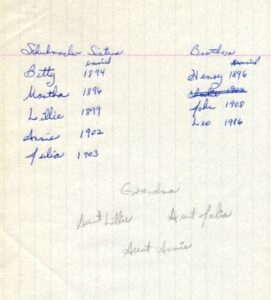 Schuhmacher Sisters
married
Betty 1894
Martha 1896
Lillie 1899
Annie 1902
Julia 1903
Brothers
married
Henry 1896
1902
John 1908
Leo 1906
Grandma
Aunt Lillie Aunt Julia
Aunt Annie